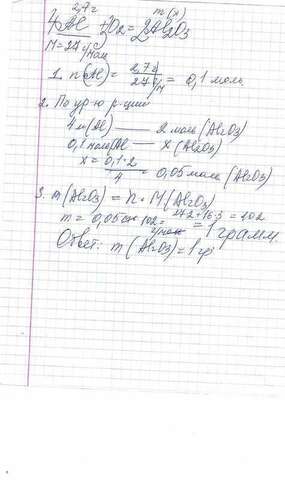 2,7г m(x)
4Al + 3O2 = 2Al2O3
M = 27 г/моль
1. n(Al) = 2,7г / 27 г/м = 0,1 моль
2. По ур-ю р-ции
4 м(Al) — 2 моль (Al2O3)
0,1 моль Al — x (Al2O3)
x = 0,1·2 / 4 = 0,05 моль (Al2O3)
3. m(Al2O3) = n · M(Al2O3)
27·2+16·3 = 102
m = 0,05 102 г/моль = 1 грамм.
Ответ: m(Al2O3) = 1 гр